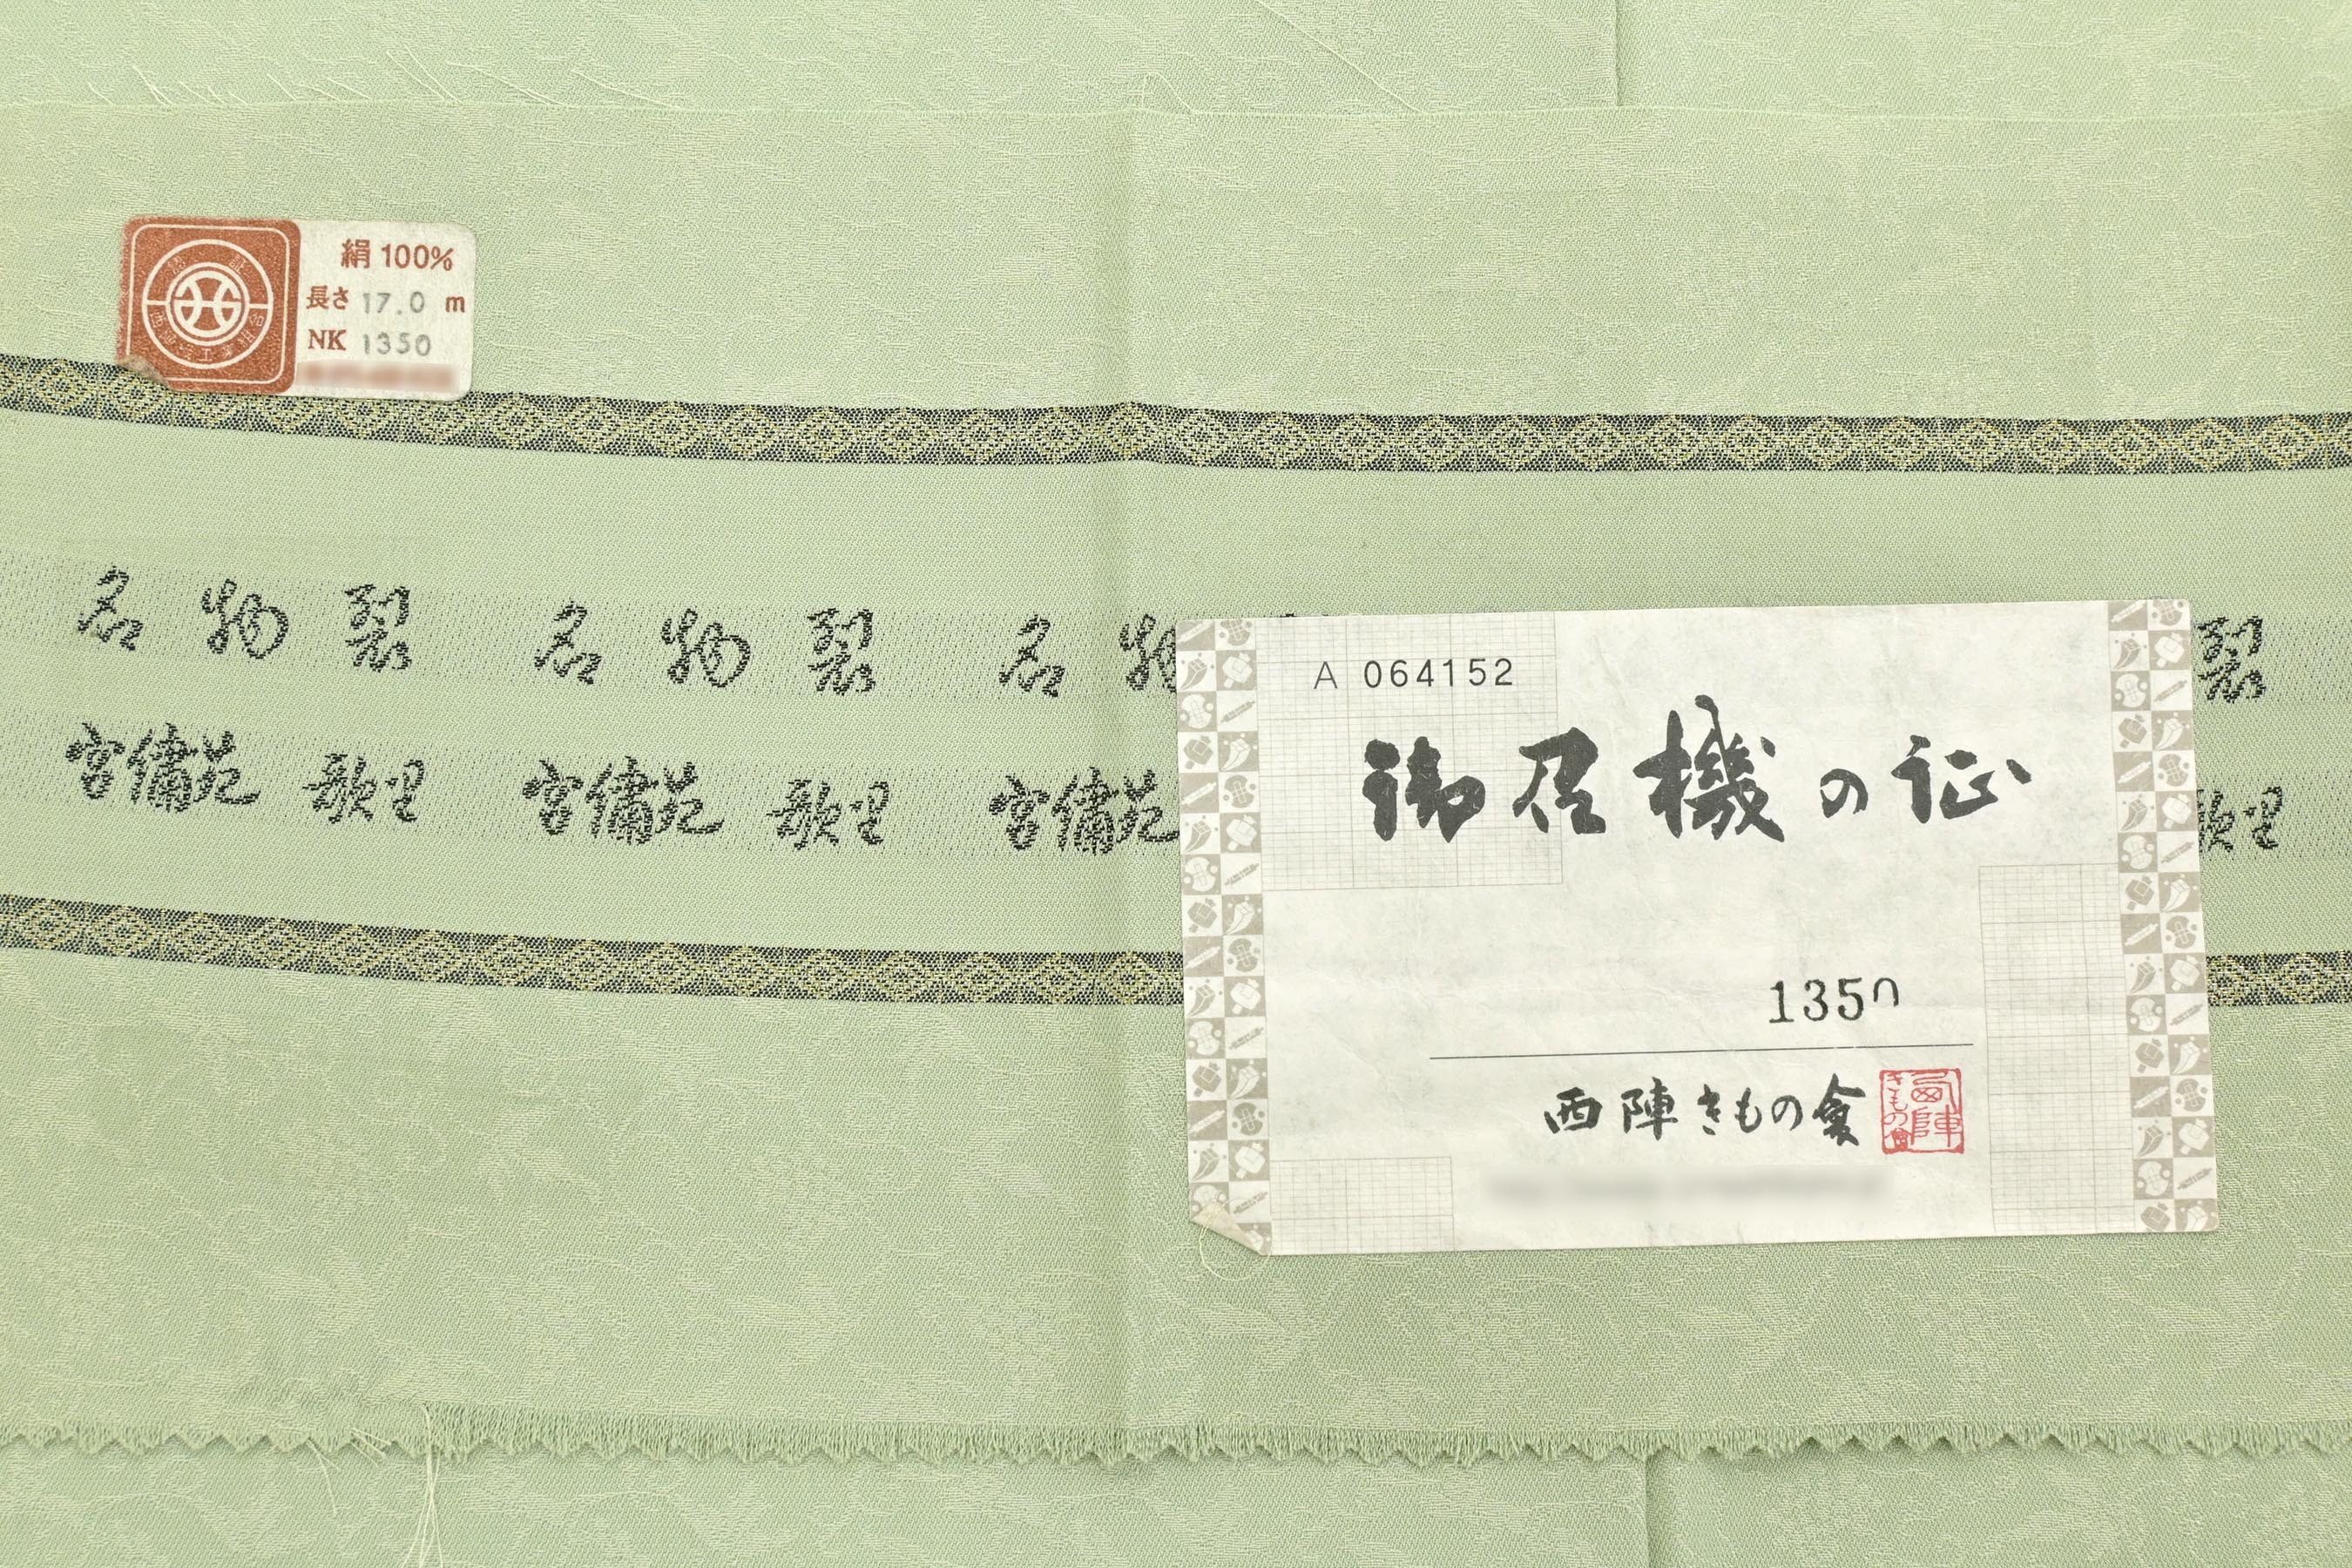 絹 100%
長さ 17.0 m
NK 1350
名物裂 名物裂 名物 裂
宮備苑 歌里 宮備苑 歌里 宮備苑 歌里
A 064152
御召機の証
1350
西陣きもの會
西陣きもの會